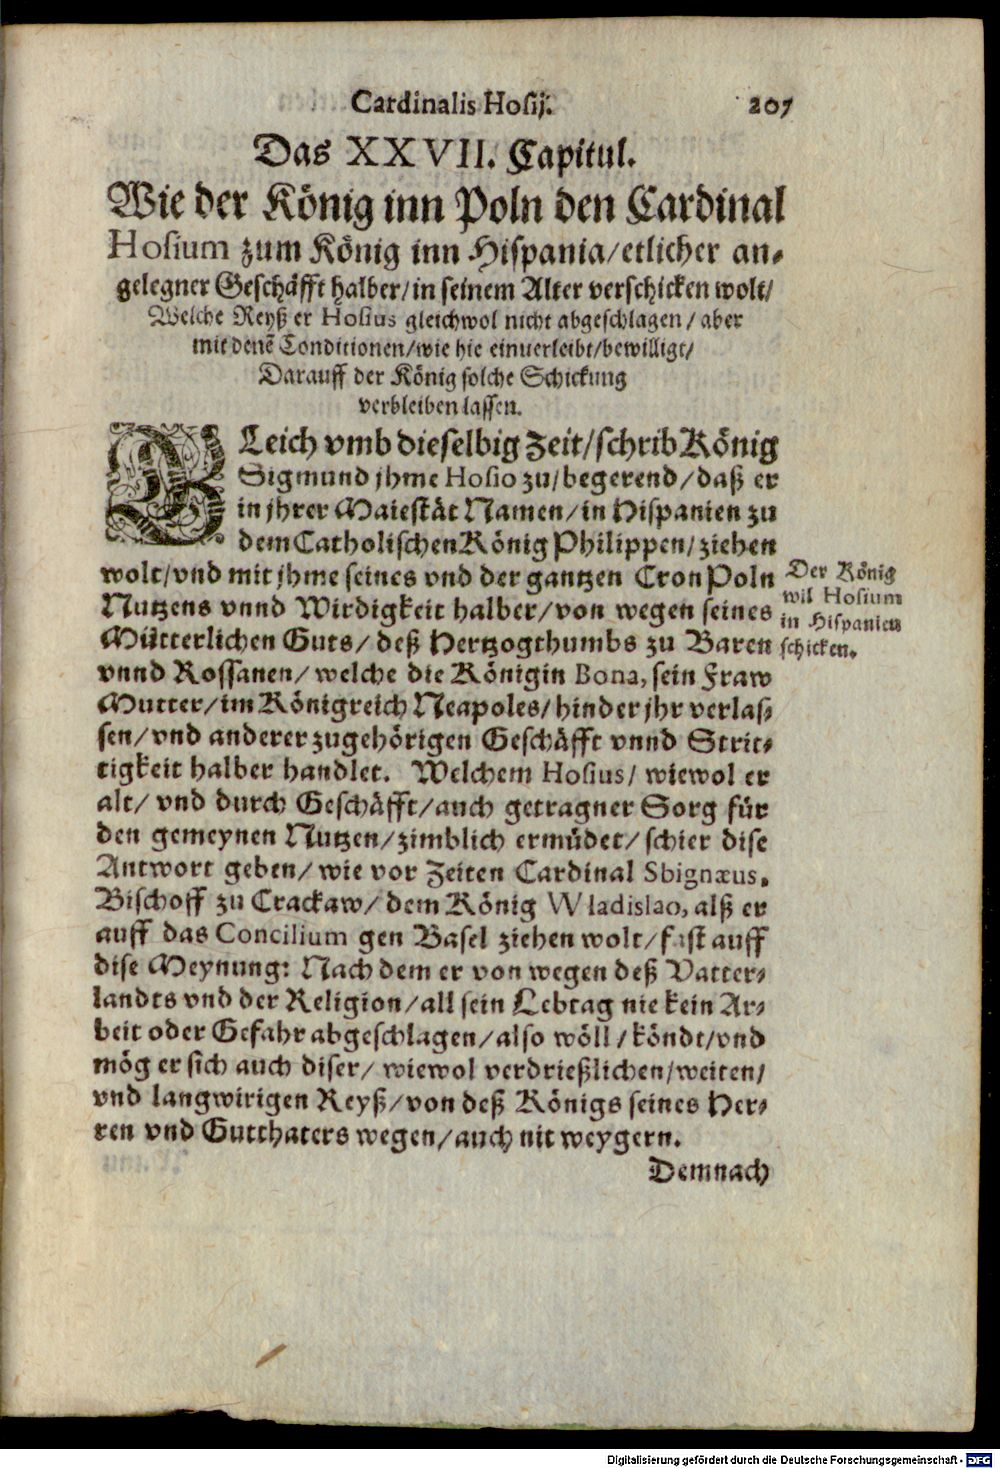 Cardinalis Hosij. 207
Das XXVII. Capitul.
Wie der König inn Poln den Cardinal
Hosium zum König inn Hispania/etlicher an-
gelegner Geschäfft halber/in seinem Alter verschicken wolt/
Welche Reyß er Hosius gleichwol nicht abgeschlagen/aber
mit denē Conditionen/wie hie einuerleibt/bewilligt/
Darauff der König solche Schickung
verbleiben lassen.
GLeich vmb dieselbig Zeit/schrib König
Sigmund jhme Hosio zu/begerend/daß er
in jhrer Maiestät Namen/in Hispanien zu
dem Catholischen König Philippen/ziehen
wolt/vnd mit jhme seines vnd der gantzen Cron Poln
Nutzens vnnd Wirdigkeit halber/von wegen seines
Mütterlichen Guts/deß Hertzogthumbs zu Baren
vnnd Rossanen/welche die Königin Bona, sein Fraw
Mutter/im Königreich Neapoles/hinder jhr verlas-
sen/vnd anderer zugehörigen Geschäfft vnnd Strit-
tigkeit halber handlet. Welchem Hosius/wiewol er
alt/vnd durch Geschäfft/auch getragner Sorg für
den gemeynen Nutzen/zimblich ermüdet/schier dise
Antwort geben/wie vor Zeiten Cardinal Sbignæus,
Bischoff zu Crackaw/dem König Wladislao, alß er
auff das Concilium gen Basel ziehen wolt/fast auff
dise Meynung: Nach dem er von wegen deß Vatter-
landts vnd der Religion/all sein Lebtag nie kein Ar-
beit oder Gefahr abgeschlagen/also wöll/köndt/vnd
mög er sich auch diser/wiewol verdrießlichen/weiten/
vnd langwirigen Reyß/von deß Königs seines Her-
ren vnd Gutthaters wegen/auch nit weygern.
Demnach
Der König
wil Hosium
in Hispanien
schicken.
Digitalisierung gefördert durch die Deutsche Forschungsgemeinschaft - DFG